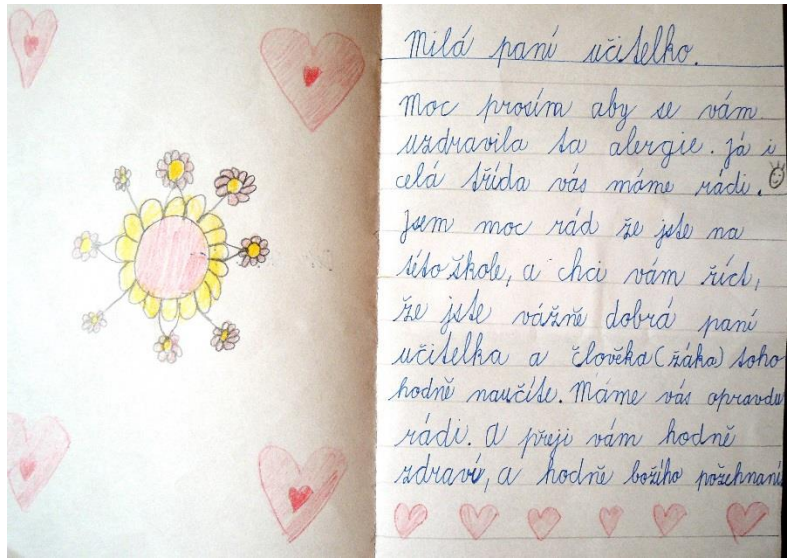 Milá paní učitelko.
Moc prosím aby se vám
uzdravila ta alergie. Já i
celá třída vás máme rádi.
Jsem moc rád že jste na
této škole, a chci vám říct,
že jste vážně dobrá paní
učitelka a člověka (žáka) toho
hodně naučíte. Máme vás opravdu
rádi. A přeji vám hodně
zdraví, a hodně božího požehnaní